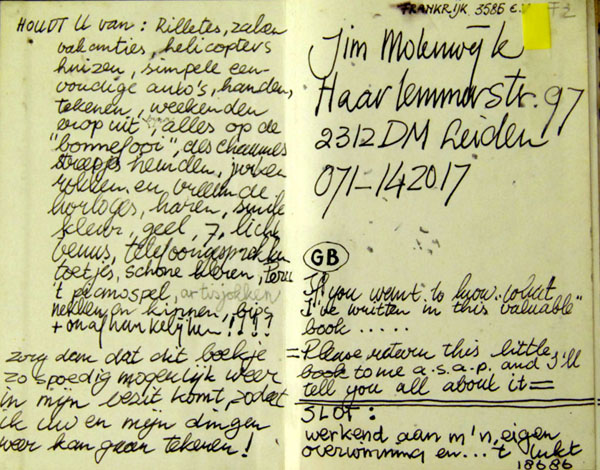 HOUDT U van: Rilletes, zalen
vakanties, helicopters
huizen, simpele een-
voudige auto's, handen,
tekenen, weekenden
erop uit, alles op de
"bonnefooi", des chaumes
streepjes hemden, jurken
rokken en vreemde
horloges, haren, smile
kleur, geel, 7, licht
venus, telefoongesprekken
toetjes, schone kleren, Peru
't pianospel, artisjokken
nekken en kinnen, bips
+ onafhankelijken!!!!
zorg dan dat dit boekje
zo spoedig mogelijk weer
in mijn bezit komt, zodat
ik uw en mijn dingen
weer kan gaan tekenen!
FRANKRIJK. 3585 E.V.
Jim Molenwijk
Haarlemmerstr. 97
2312 DM Leiden
071-142017
GB
If you want to know.. what
I've written in this valuable"
book .....
= Please return this little
book to me a.s.a.p. and I'll
tell you all about it =
SLOT:
werkend aan m'n eigen
overwinning en... 't lukt
18686